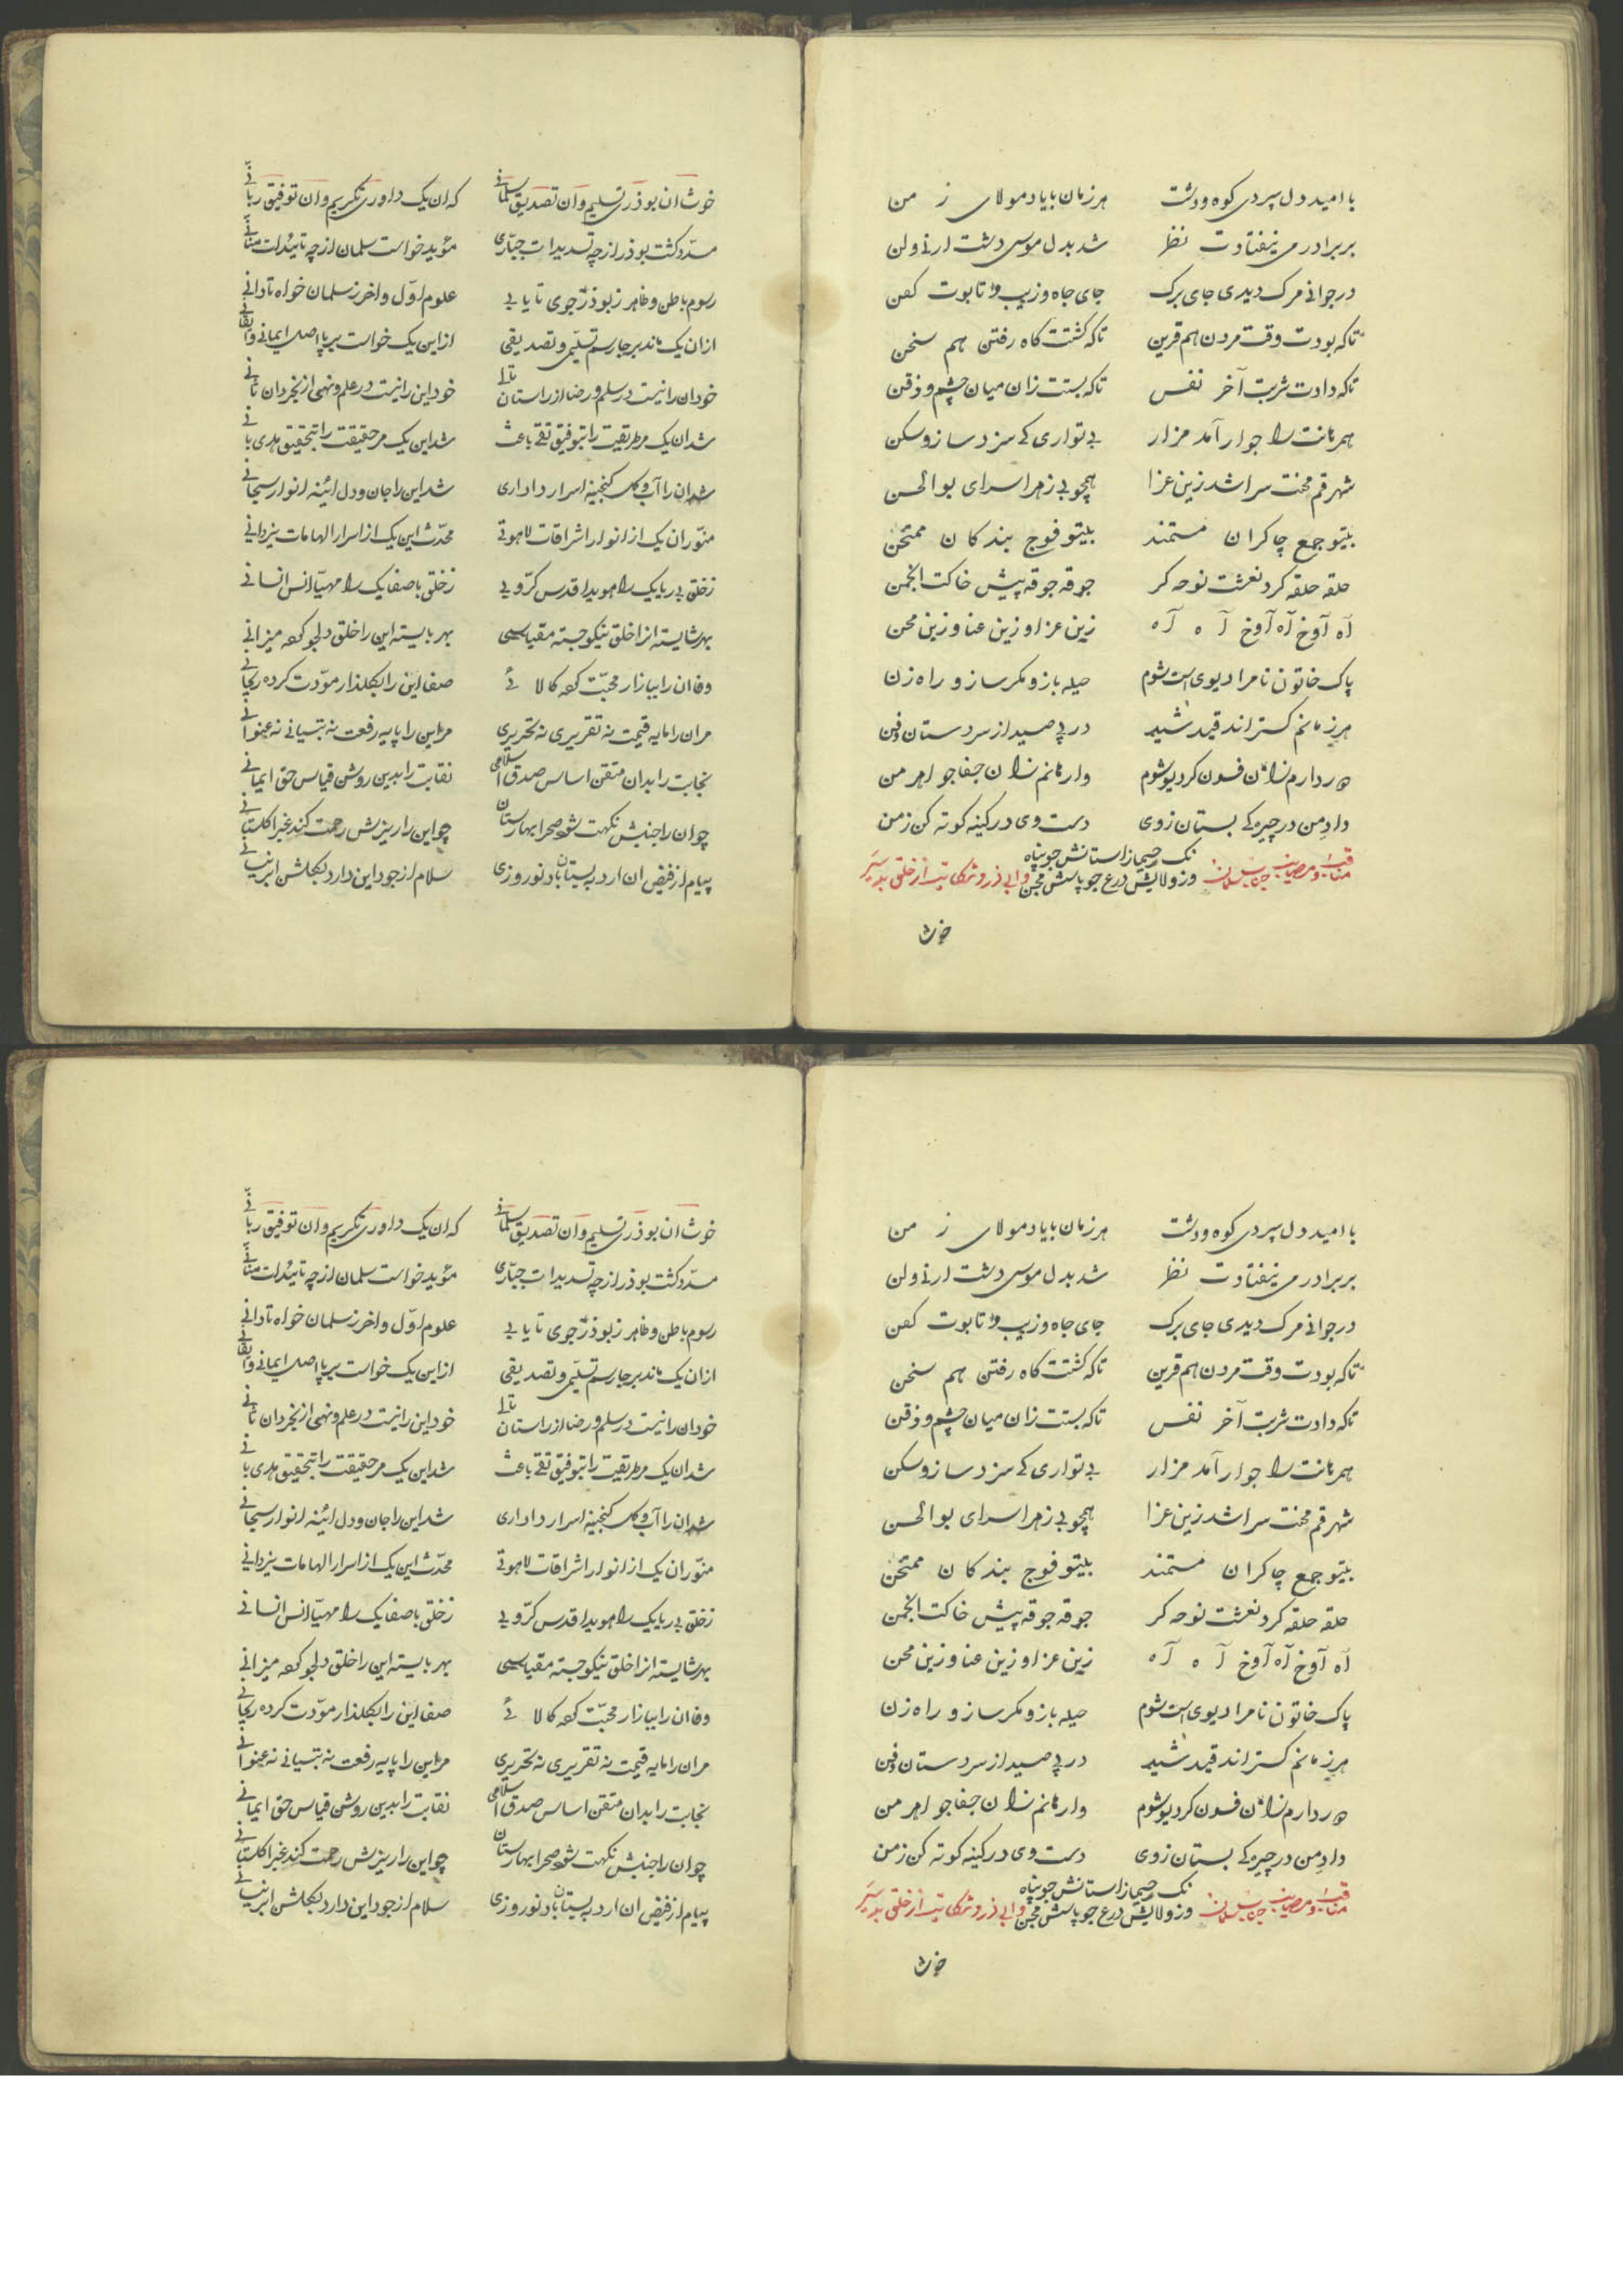 با امید دل سپردی کوه و دشت هر زمان با یاد مولای ز من
بر برادر می نیفتادت نظر شد بدل موسی دشت ارنی و لن
در جوانی مرک دیدی جای برک جای جاه و زیب و تابوت کفن
تا که بودت وقت مردن هم قرین تا که کشتت کاه رفتن هم سخن
تا که دادت شربت آخر نفس تا که بستت زان میان چشم و ذقن
را جوار آمد مزار بی تواری کی سزد ساز و سکن
شهر قم محنت سرا شد زین عزا همچو بی زهرا سرای بوالحسن
بیتو جمع چاکران مستمند بیتو فوج بندکان ممتحن
حلقه حلقه کرد نعشت نوحه کر جوقه جوقه پیش خاکت انجمن
آه آوخ آه آوخ آه آه زین عزا و زین عنا و زین محن
پاک خاتون نامرا دیوی است شوم حیله باز و مکر ساز و راه زن
هر زمانم کستراند قید شید در پی صید از سر دستان و فن
فسون کر دیو شوم وارهانم زان جفاجو اهرمن
داد من در چیره کی بستان زوی دست وی در کینه کوته کن ز من
نک رحیما ز استانش جو پناه
وز ولایش درع جو پاسش مجن
خوش
خوش ان بوذری تسلیم وان تصدیق سلمانی که ان یک داوری تکریم وان توفیق ربانی
مسدد کشت بوذر از چه تسدیدات جباری مؤید خواست سلمان از چه تائیدات منانی
رسوم باطن و ظاهر ز بوذر جوی تا یابی علوم اول و اخر ز سلمان خواه تا دانی
ازان یک ماند بر جا رسم تسلیمی و تصدیقی ازاین یک خواست بر پا اصل ایمانی و ایقانی
خود ان را نیست در سلم و رضا از راستان تالی خود این را نیست در علم و نهی از بخردان ثانی
شد ان یک مر طریقت را بتوفیق تقی باعث شد این یک مر حقیقت را بتحقیق هدی بانی
شد ان را آب و کل کنجینه اسرار داداری شد این را جان و دل ائینه انوار سبحانی
منور ان یک از انوار اشراقات لاهوتی محدث این یک از اسرار الهامات یزدانی
ز خلق بی ریا یک را هویدا قدس کروبی ز خلق با صفا یک را مهیا انس انسانی
بهر شایسته از اخلق نیکو جسته مقیاسی بهر بایسته این را خلق دلجو کرده میزانی
وفا ان را ببازار محبت کرده کالائی صفا این را بکلذار مودت کرده ریحانی
مر ان را مایه قیمت نه تقریری نه تحریری مر این را پایه رفعت نه تبیانی نه عنوانی
نجابت را بدان متقن اساس صدق اسلامی نقابت را بدین روشن قیاس حق ایمانی
چو ان را جنبش نکهت شود صحرا بهارستان چو این را ریزش رحمت کند غبرا کلستانی
پیام از فیض ان ارد ببستان باد نوروزی سلام از جود این دارد بکلشن ابر نیسانی
با امید دل سپردی کوه و دشت هر زمان با یاد مولای ز من
بر برادر می نیفتادت نظر شد بدل موسی دشت ارنی و لن
در جوانی مرک دیدی جای برک جای جاه و زیب و تابوت کفن
تا که بودت وقت مردن هم قرین تا که کشتت کاه رفتن هم سخن
تا که دادت شربت آخر نفس تا که بستت زان میان چشم و ذقن
را جوار آمد مزار بی تواری کی سزد ساز و سکن
شهر قم محنت سرا شد زین عزا همچو بی زهرا سرای بوالحسن
بیتو جمع چاکران مستمند بیتو فوج بندکان ممتحن
حلقه حلقه کرد نعشت نوحه کر جوقه جوقه پیش خاکت انجمن
آه آوخ آه آوخ آه آه زین عزا و زین عنا و زین محن
پاک خاتون نامرا دیوی است شوم حیله باز و مکر ساز و راه زن
هر زمانم کستراند قید شید در پی صید از سر دستان و فن
فسون کر دیو شوم وارهانم زان جفاجو اهرمن
داد من در چیره کی بستان زوی دست وی در کینه کوته کن ز من
نک رحیما ز استانش جو پناه
وز ولایش درع جو پاسش مجن
خوش
خوش ان بوذری تسلیم وان تصدیق سلمانی که ان یک داوری تکریم وان توفیق ربانی
مسدد کشت بوذر از چه تسدیدات جباری مؤید خواست سلمان از چه تائیدات منانی
رسوم باطن و ظاهر ز بوذر جوی تا یابی علوم اول و اخر ز سلمان خواه تا دانی
ازان یک ماند بر جا رسم تسلیمی و تصدیقی ازاین یک خواست بر پا اصل ایمانی و ایقانی
خود ان را نیست در سلم و رضا از راستان تالی خود این را نیست در علم و نهی از بخردان ثانی
شد ان یک مر طریقت را بتوفیق تقی باعث شد این یک مر حقیقت را بتحقیق هدی بانی
شد ان را آب و کل کنجینه اسرار داداری شد این را جان و دل ائینه انوار سبحانی
منور ان یک از انوار اشراقات لاهوتی محدث این یک از اسرار الهامات یزدانی
ز خلق بی ریا یک را هویدا قدس کروبی ز خلق با صفا یک را مهیا انس انسانی
بهر شایسته از اخلق نیکو جسته مقیاسی بهر بایسته این را خلق دلجو کرده میزانی
وفا ان را ببازار محبت کرده کالائی صفا این را بکلذار مودت کرده ریحانی
مر ان را مایه قیمت نه تقریری نه تحریری مر این را پایه رفعت نه تبیانی نه عنوانی
نجابت را بدان متقن اساس صدق اسلامی نقابت را بدین روشن قیاس حق ایمانی
چو ان را جنبش نکهت شود صحرا بهارستان چو این را ریزش رحمت کند غبرا کلستانی
پیام از فیض ان ارد ببستان باد نوروزی سلام از جود این دارد بکلشن ابر نیسانی